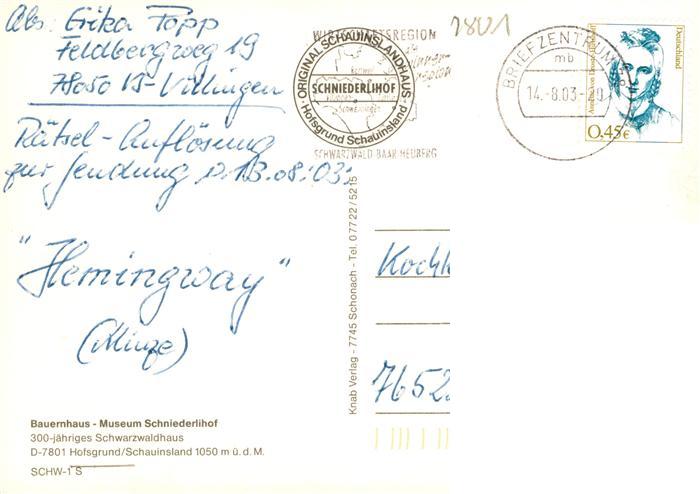 Abs: Erika Popp
Feldbergweg 19
78050 VS-Villingen
Rätsel-Auflösung
zur Sendung v. 13.08.03:
"Hemingway"
(Minze)
WIRTSCHAFTSREGION
SCHWARZWALD-BAAR-HEUBERG
ORIGINAL SCHAUINSLANDHAUS
SCHNIEDERLIHOF
Hofsgrund Schauinsland
7801
BRIEFZENTRUM 78
mb
14.-8.03.-
Deutschland
0.45€
Knab Verlag - 7745 Schonach - Tel. 07722/5215
Kochk
7652
Bauernhaus - Museum Schniederlihof
300-jähriges Schwarzwaldhaus
D-7801 Hofsgrund/Schauinsland 1050 m ü. d. M.
SCHW-1 S